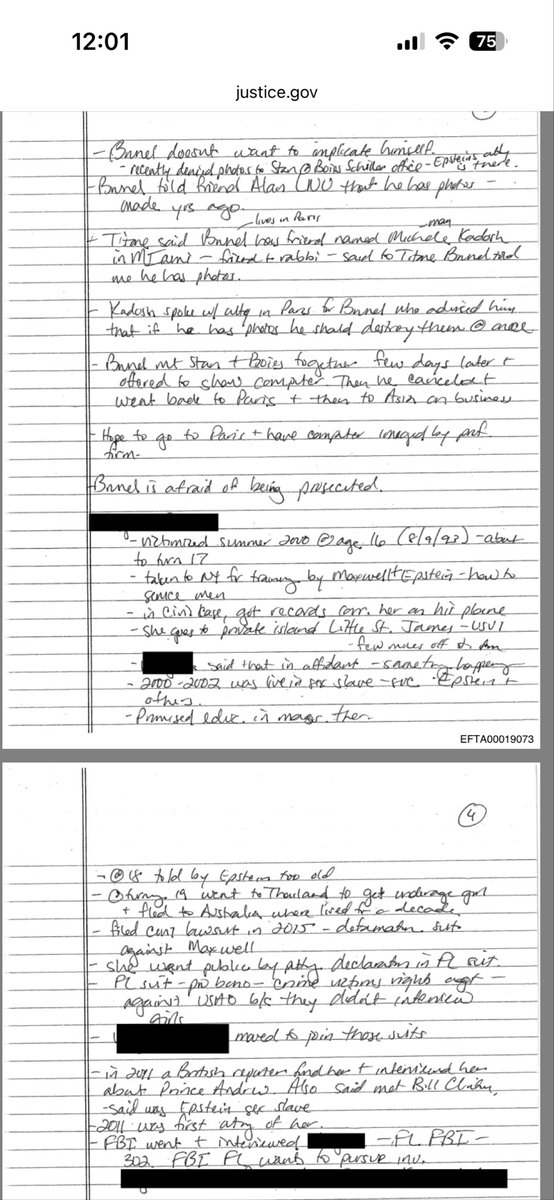 12:01
75
justice.gov
- Brunel doesn't want to implicate himself.
- recently denied photos to Stan @ Boies Schiller office - Epstein's atty is there.
- Brunel told friend Alan LNU that he has photos -
made yrs ago.
lives in Paris
man
- Titone said Brunel has friend named Michele Kadosh
in Miami - friend + rabbi - said to Titone Brunel told
me he has photos.
- Kadosh spoke w/ atty in Paris for Brunel who advised him
that if he has photos he should destroy them @ once
- Brunel met Stan + Boies together few days later +
offered to show computer. Then he cancelled +
went back to Paris + then to Asia on business
- Hope to go to Paris + have computer imaged by prof.
firm.
Brunel is afraid of being prosecuted.
- victimized summer 2000 @ age 16 (8/9/83) - about
to turn 17
- taken to NY for training by Maxwell + Epstein - how to
service men
- in civil case, got records conc. her on his plane
- she goes to private island Little St. James - USVI
- few miles off St.
- said that in affidavit - something happen
- 2000-2002 was live in sex slave - svc Epstein +
others.
- Promised educ. in massg. ther.
EFTA00019073
4
- @ 18 told by Epstein too old
- @ turning 19 went to Thailand to get underage girl
+ fled to Australia where lived for a decade
- filed civil lawsuit in 2015 - defamation suit
against Maxwell
- she went public by atty. declaration in FL suit.
- FL suit - pro bono - crime victims rights act -
against USAO b/c they didn't interview
girls
- moved to join those suits
- in 2011 a British reporter find her + interviewed her
about Prince Andrew. Also said met Bill Clinton,
- said was Epstein sex slave
- 2011 was first atty of her.
- FBI went + interviewed - FL FBI -
302. FBI FL wants to pursue inv.